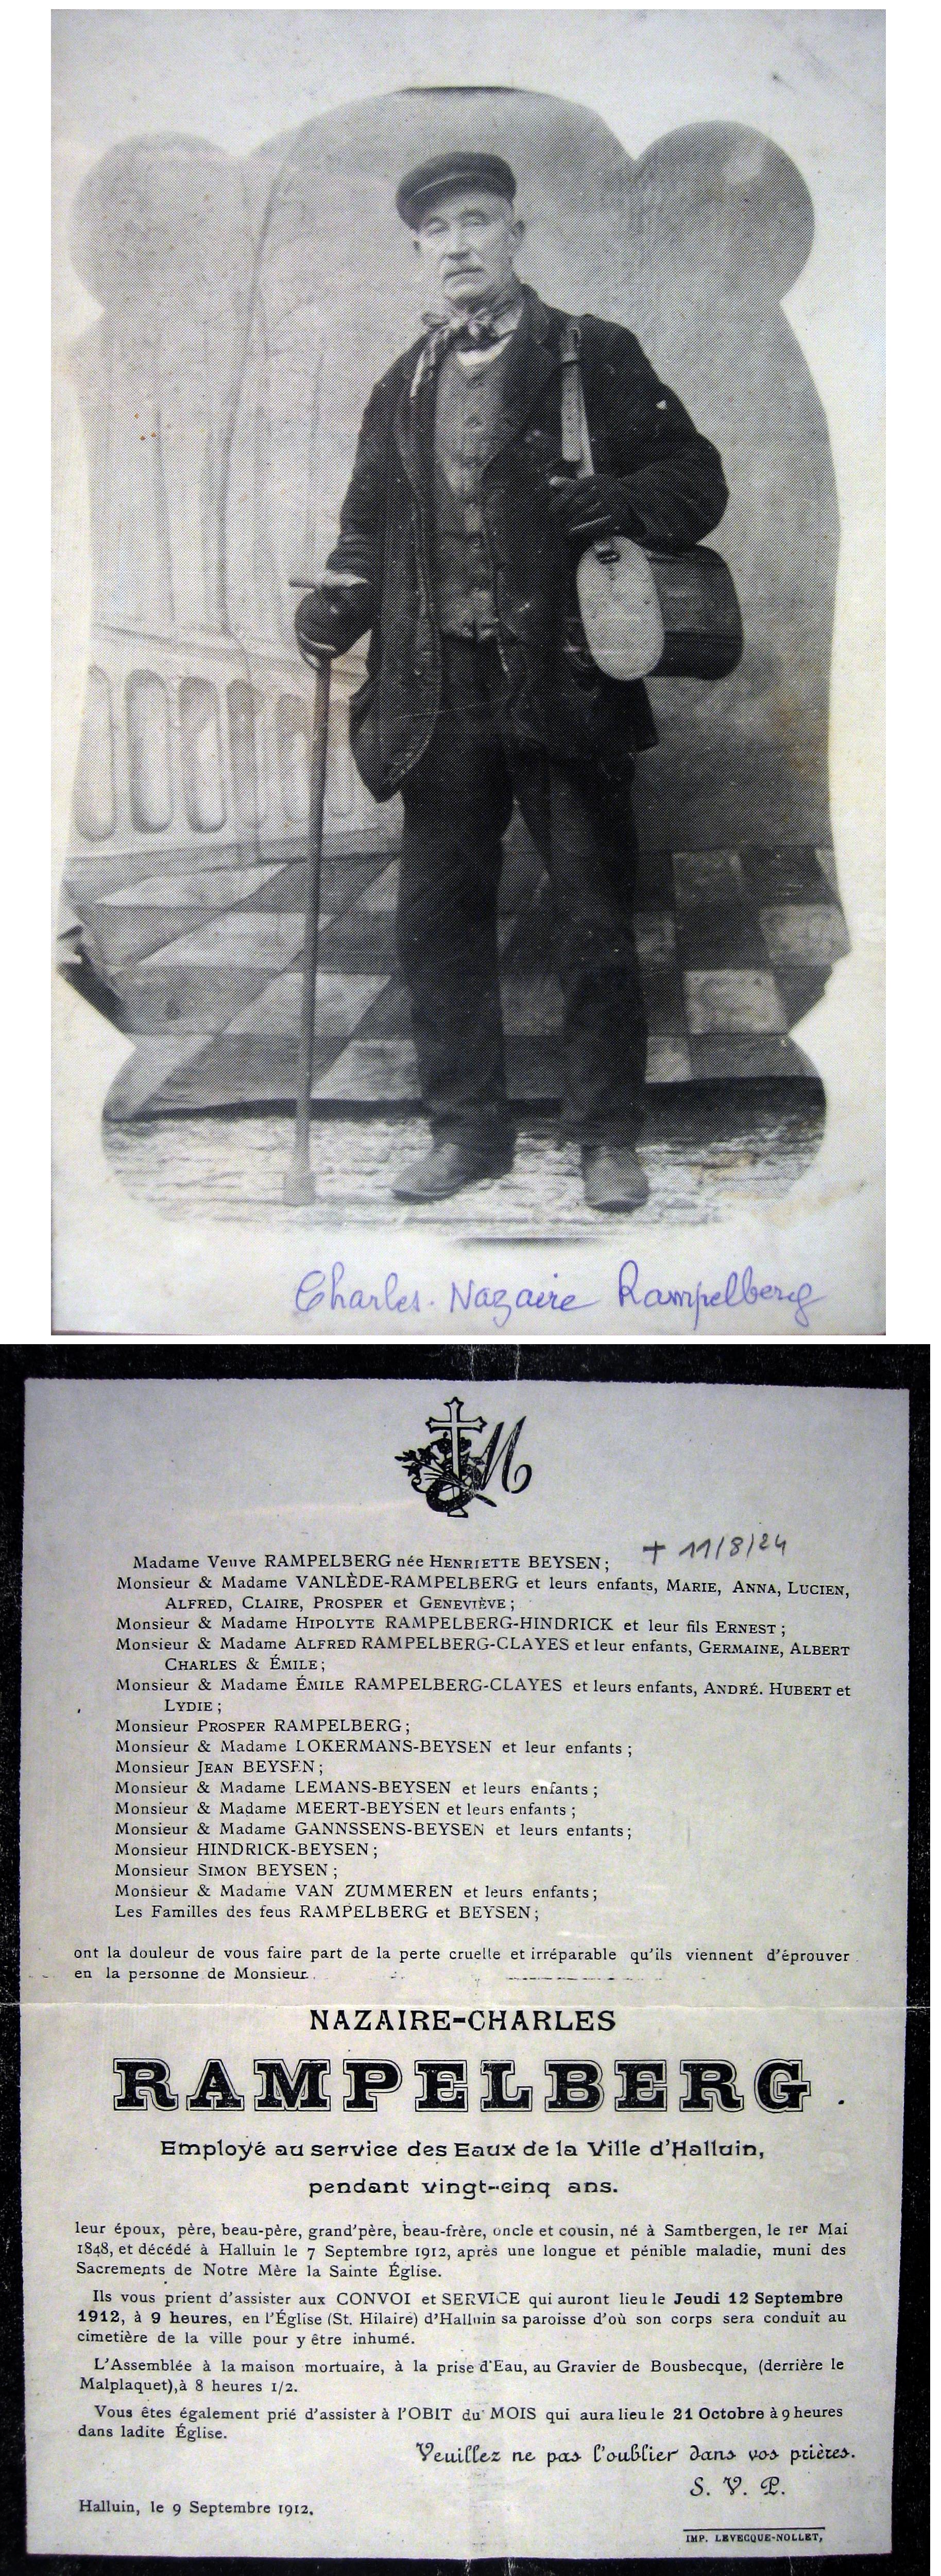 Charles. Nazaire Rampelberg
M
+ 11/8/24
Madame Veuve RAMPELBERG née HENRIETTE BEYSEN;
Monsieur & Madame VANLÈDE-RAMPELBERG et leurs enfants, MARIE, ANNA, LUCIEN,
ALFRED, CLAIRE, PROSPER et GENEVIÈVE;
Monsieur & Madame HIPOLYTE RAMPELBERG-HINDRICK et leur fils ERNEST;
Monsieur & Madame ALFRED RAMPELBERG-CLAYES et leur enfants, GERMAINE, ALBERT
CHARLES & ÉMILE;
Monsieur & Madame ÉMILE RAMPELBERG-CLAYES et leurs enfants, ANDRÉ. HUBERT et
LYDIE;
Monsieur PROSPER RAMPELBERG;
Monsieur & Madame LOKERMANS-BEYSEN et leur enfants;
Monsieur JEAN BEYSEN;
Monsieur & Madame LEMANS-BEYSEN et leurs enfants;
Monsieur & Madame MEERT-BEYSEN et leurs enfants;
Monsieur & Madame GANNSSENS-BEYSEN et leurs enfants;
Monsieur HINDRICK-BEYSEN;
Monsieur SIMON BEYSEN;
Monsieur & Madame VAN ZUMMEREN et leurs enfants;
Les Familles des feus RAMPELBERG et BEYSEN;
ont la douleur de vous faire part de la perte cruelle et irréparable qu'ils viennent d'éprouver
en la personne de Monsieur
NAZAIRE-CHARLES
RAMPELBERG.
Employé au service des Eaux de la Ville d'Halluin,
pendant vingt-cinq ans.
leur époux, père, beau-père, grand'père, beau-frère, oncle et cousin, né à Samtbergen, le 1er Mai
1848, et décédé à Halluin le 7 Septembre 1912, après une longue et pénible maladie, muni des
Sacrements de Notre Mère la Sainte Église.
Ils vous prient d'assister aux CONVOI et SERVICE qui auront lieu le Jeudi 12 Septembre
1912, à 9 heures, en l'Église (St. Hilaire) d'Halluin sa paroisse d'où son corps sera conduit au
cimetière de la ville pour y être inhumé.
L'Assemblée à la maison mortuaire, à la prise d'Eau, au Gravier de Bousbecque, (derrière le
Malplaquet), à 8 heures 1/2.
Vous êtes également prié d'assister à l'OBIT du MOIS qui aura lieu le 21 Octobre à 9 heures
dans ladite Église.
Veuillez ne pas l'oublier dans vos prières.
S. V. P.
Halluin, le 9 Septembre 1912.
IMP. LEVECQUE-NOLLET,